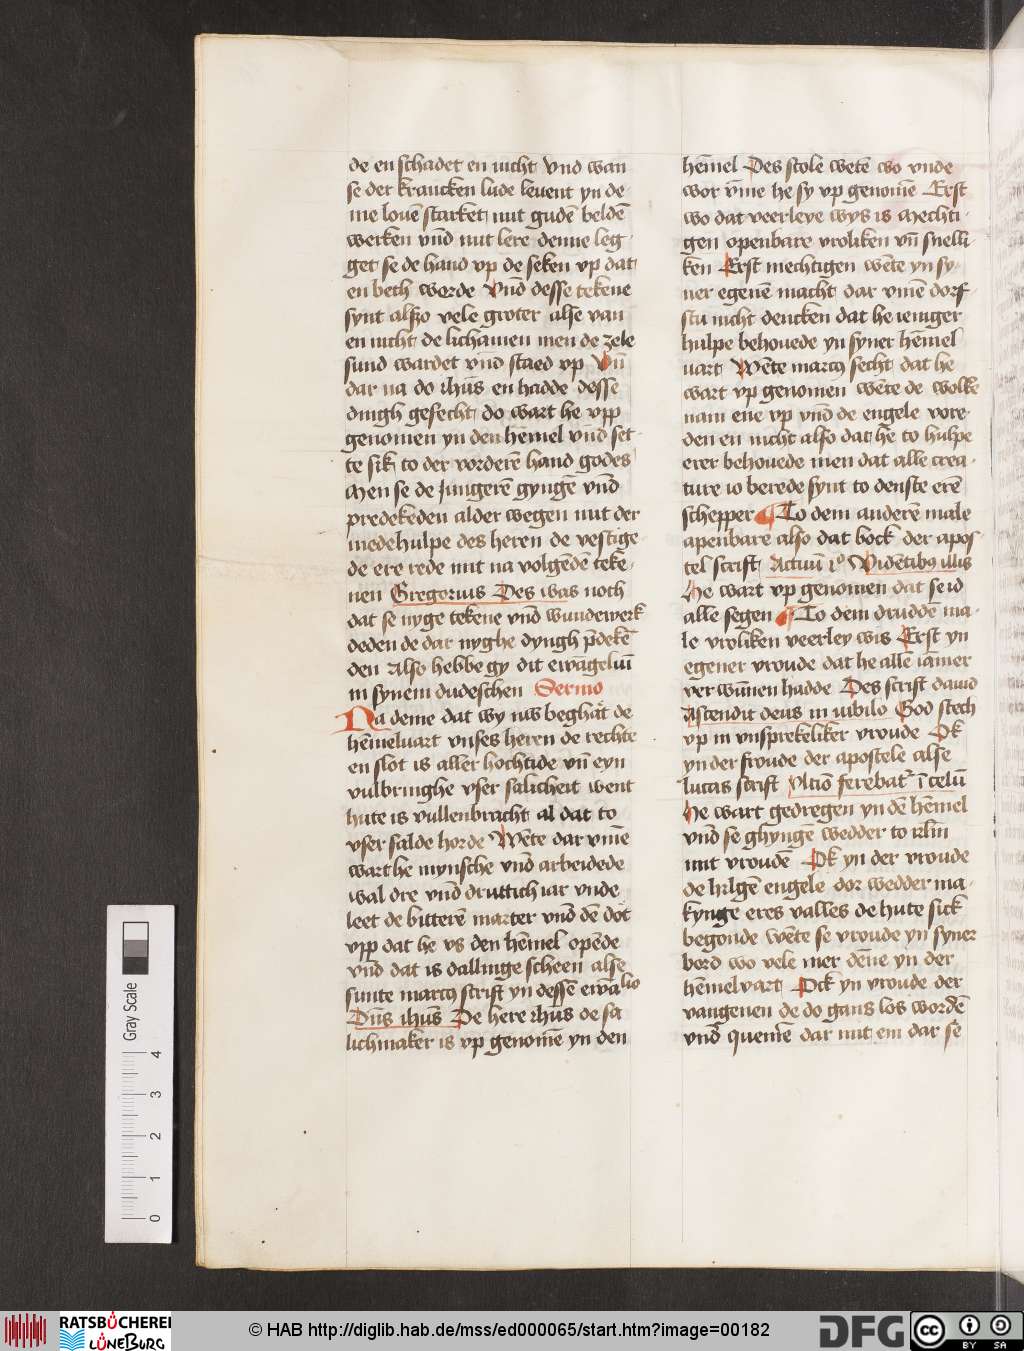 de en schadet en nicht Vnd wan
se der krancken lude leuent yn de
me louē starket mit gudē beldē
werken vnd mit lere denne leg
get se de hand vp de seken vp dat
en beth worde Vnd desse tekene
synt alszo vele groter alse van
en nicht de lichamen men de zele
sund wardet vnd staed vp Vn̄
dar na do ihūs en hadde desse
dingh gesecht do wart he vpp
genomen yn den hemel vnd set
te sik to der vorderē hand godes
Men se de Jungerē gyngē vnd
predekeden alder wegen mit der
medehulpe des heren de vestige
de ere rede mit na volgēdē teke
nen Gregorius Des was noch
dat se nyge tekene vnd wunderwerk
deden de dar nyghe dyngh p̄deke
den Also hebbe gy dit ewāgeliū
in synem dudeschen Sermo
Na deme dat wy nw beghāt de
hēmeluart vnses heren de rechte
en slot is aller hochtide vn̄ eyn
vulbringhe vser salicheit went
hute is vullenbracht al dat to
vser salde horde Wēte dar vmē
wart he mynsche vnd arbeidede
wal dre vnd druttich iar vnde
leet de bitterē marter vnd dē dot
vpp dat he vs den hēmel opēde
vnd dat is dallinge scheen alse
sunte marcꝰ scrift yn dessē ewālio
Dn̄s ihūs De here ihūs de sa
lichmaker is vp genomē yn den
hēmel Des stole wetē wo vnde
wor vm̄e he sy vp genomē Erst
wo dat veerleye wys is Mechti
gen openbare vroliken vn̄ snelli
ken Erst mechtigen wēte yn sy
ner egenē macht dar vmē dorf
stu nicht dencken dat he ieniger
hulpe behouede yn syner hēmel
uart Wēte marcꝰ secht dat he
wart vp genomen wēte de wolke
nam ene vp vnd de engele vore
den en nicht also dat he to hulpe
erer behouede men dat alle crea
ture io berede synt to denste erē
schepper To dem anderē male
apenbare also dat bock der apos
tel scrift Actuū i⁰ Videntibꝰ illis
He wart vp genomen dat se id
alle segen To dem drudde ma
le vroliken veerley wis Erst yn
egener vroude dat he allē iāmer
ver wūnen hadde Des scrift dauid
Ascendit deus in iubilo God stech
vp in vnsprekeliker vroude Ok
yn der froude der apostele alse
lucas scrift Vltiō ferebat' ī celū
He wart gedregen yn dē hēmel
vnd se ghyngē wedder to irlm̄
mit vroudē Ok yn der vroude
de hilgē engele dor wedder ma
kynge eres valles de hute sick
begonde wēte se vroude yn syner
bord wo vele mer dēne yn der
hēmelvart Ock yn vroude der
vangenen de do gans los wordē
vnd quemē dar mit em dar se
Gray Scale
4
3
2
1
0
RATSBÜCHEREI
LÜNEBURG
© HAB http://diglib.hab.de/mss/ed000065/start.htm?image=00182
DFG
cc
BY SA